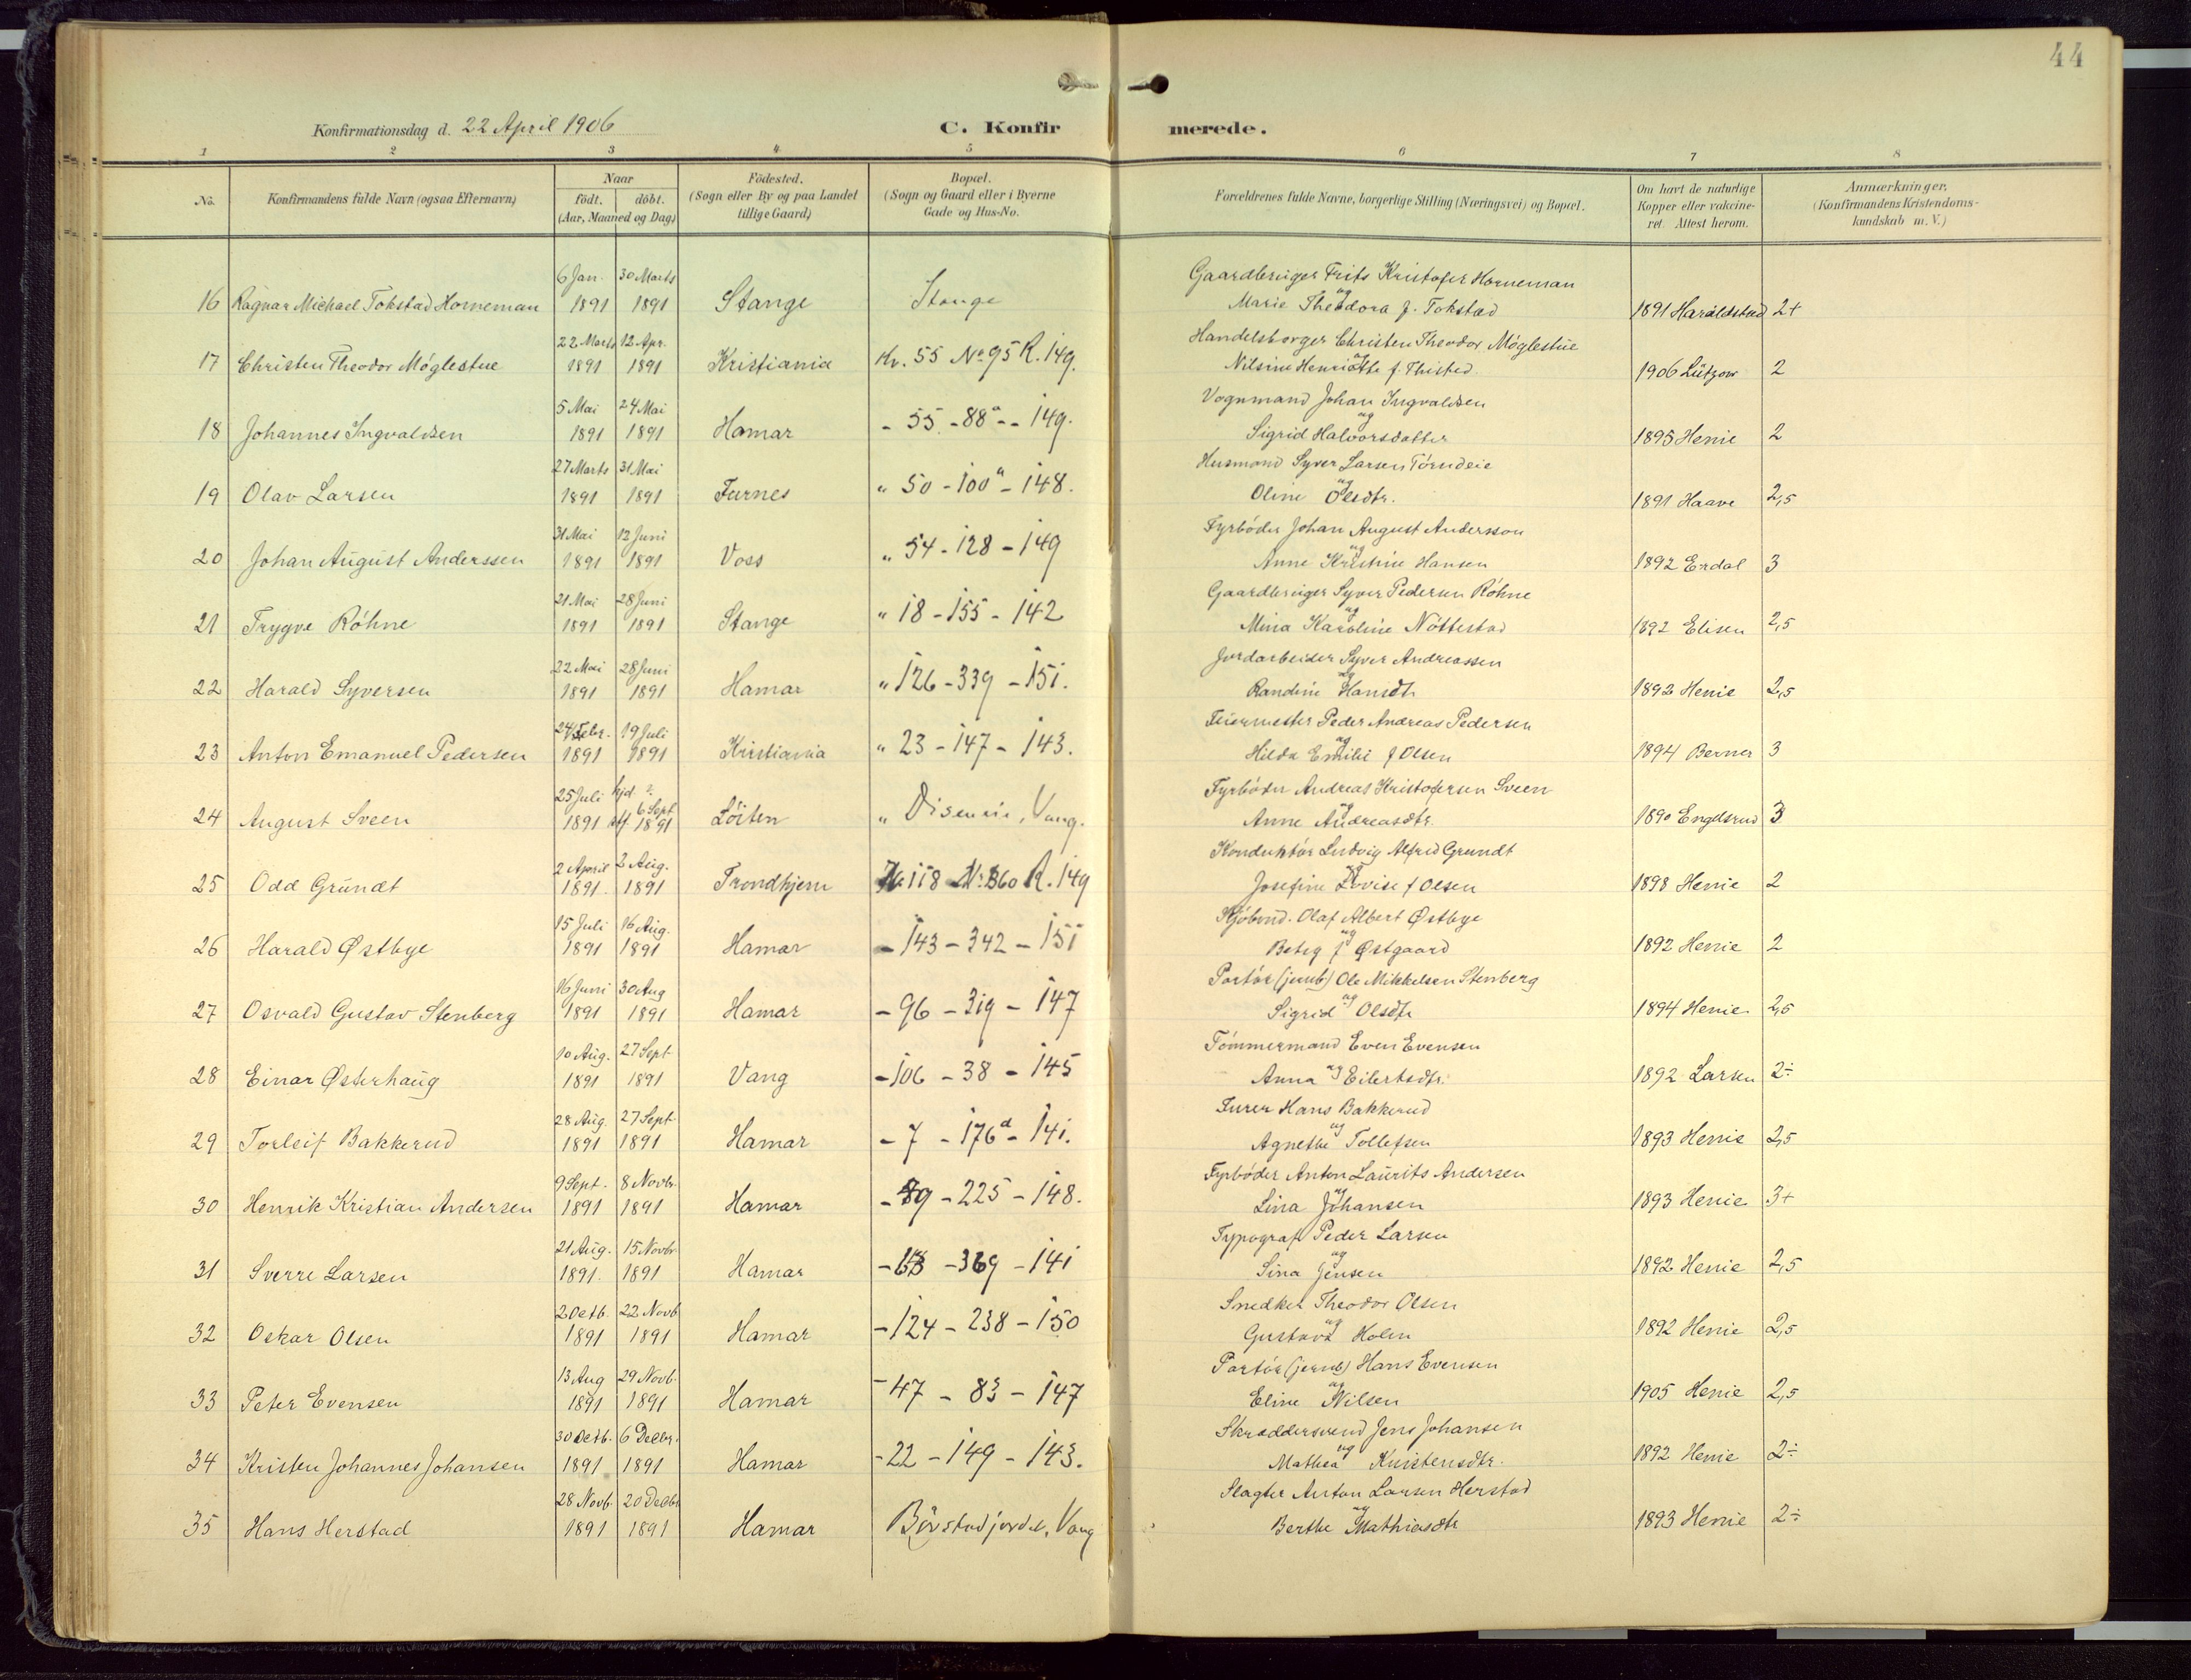 44
Konfirmationsdag d. 22 April 1906 C. Konfirmerede.
1 2 3 4 5 6 7 8
No. Konfirmandens fulde Navn (ogsaa Efternavn) Naar født. døbt. (Aar, Maaned og Dag) Fødested. (Sogn eller By og paa Landet tillige Gaard) Bopæl. (Sogn og Gaard eller i Byerne Gade og Hus-No. Forældrenes fulde Navne, borgerlige Stilling (Næringsvei) og Bopæl. Om havt de naturlige Kopper eller vakcineret. Attest herom. Anmærkninger. (Konfirmandens Kristendomskundskab m. V.)
6 Jan. 30 Marts Gaardbruger Frits Kristofer Horneman
16 Ragnar Michael Tokstad Horneman 1891 1891 Stange Stange og Marie Theodora f. Tokstad 1891 Haraldstad 2+
22 Marts 12 Apr. Handelsborger Christen Theodor Møglestue
17 Christen Theodor Møglestue 1891 1891 Kristiania Kv. 55 No 95 R. 149. og Nilsine Henriette f. Thisted 1906 Lützow 2
5 Mai 24 Mai Vognmand Johan Ingvaldsen
18 Johannes Ingvaldsen 1891 1891 Hamar - 55 - 88a - - 149. og Sigrid Halvorsdatter 1895 Henie 2
27 Marts 31 Mai Husmand Syver Larsen Tørudeie
19 Olav Larsen 1891 1891 Furnes " 50 - 100a - 148. og Oline Olsdtr. 1891 Haave 2,5
31 Mai 12 Juni Fyrbøder Johan August Andersson
20 Johan August Anderssen 1891 1891 Voss " 54 - 128 - 149 og Anne Kristine Hansen 1892 Erdal 3
21 Mai 28 Juni Gaardbruger Syver Pedersen Røhne
21 Trygve Røhne 1891 1891 Stange " 18 - 155 - 142 og Mina Karoline Nøttestad 1892 Elisen 2,5
22 Mai 28 Juni Jordarbeider Syver Andreassen
22 Harald Syversen 1891 1891 Hamar " 126 - 339 - 151. og Randine Hansdtr 1892 Henie 2,5
24 Febr. 19 Juli Feiermester Peder Andreas Pedersen
23 Anton Emanuel Pedersen 1891 1891 Kristiania " 23 - 147 - 143. og Hilda Emilie f Olsen 1894 Berner 3
25 Juli hjd 6 Sept. Fyrbøder Andreas Kristofersen Sveen
24 August Sveen 1891 1891 Løiten " Disenin, Vang. og Anne Andreasdtr. 1890 Engelsrud 3
2 April 2 Aug. Konduktør Ludvig Alfred Grundt
25 Odd Grundt 1891. 1891 Trondhjem Kv 118 No 360 R. 149 og Josefine Lovise f Olsen 1898 Henie 2
15 Juli 16 Aug. Kjøbmd. Olaf Albert Østbye
26 Harald Østbye 1891 1891 Hamar - 143 - 342 - 151 og Betsy f Østgaard 1892 Henie 2
16 Juni 30 Aug Portør (jernb) Ole Mikkelsen Stenberg
27 Osvald Gustav Stenberg 1891 1891 Hamar - 96 - 319 - 147 og Sigrid Olsdtr 1894 Henie 2,5
10 Aug. 27 Sept. Tømmermand Even Evensen
28 Einar Østerhaug 1891 1891 Vang - 106 - 38 - 145 Anna og Eilertsdtr. 1892 Larsen 2÷
28 Aug. 27 Sept. Furer Hans Bakkerud
29 Torleif Bakkerud 1891 1891 Hamar - 7 - 176a - 141. og Agnethe Tollefsen 1893 Henie 2,5
9 Sept. 8 Novbr. Fyrbøder Anton Laurits Andersen
30 Henrik Kristian Andersen 1891 1891 Hamar - 89 - 225 - 148. og Lina Johansen 1893 Henie 3+
21 Aug. 15 Novbr. Typograf Peder Larsen
31 Sverre Larsen 1891. 1891 Hamar - 369 - 141 og Sina Jensen 1892 Henie 2,5
2 Octb. 22 Novb Snedker Theodor Olsen
32 Oskar Olsen 1891 1891 Hamar - 124 - 238 - 150 og Gustava Holen 1892 Henie 2,5
13 Aug 29 Novb. Portør (jernb) Hans Evensen
33 Peter Evensen 1891 1891 Hamar - 47 - 83 - 147 og Eline Nilsen 1905 Henie 2,5
30 Octb. 6 Decbr. Skræddersvend Jens Johansen
34 Kristen Johannes Johansen 1891 1891 Hamar - 22 - 149 - 143. og Mathea Kristensdtr. 1892 Henie 2÷
28 Novb. 20 Decbr Slagter Anton Larsen Herstad
35 Hans Herstad 1891 1891 Hamar Børstadjordet, Vang og Berthe Mathiasdtr 1893 Henie 2÷